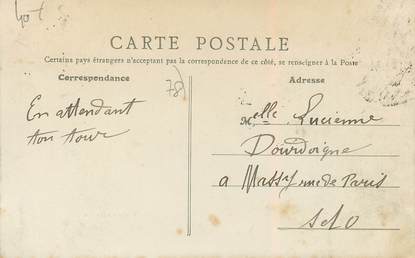 CARTE POSTALE
Certains pays étrangers n'acceptant pas la correspondance de ce côté, se renseigner à la Poste
Correspondance
Adresse
78
En attendant
ton tour
Melle Lucienne
Dourdoigne
a Massy rue de Paris
S et O